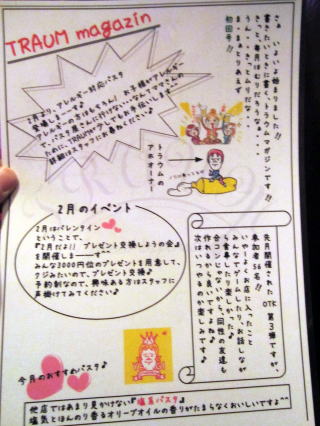 TRAUM magazin
さぁ、いよいよ始まりました!!
書きたい時に書く、トラウムマガジンです!!
きっと、毎月はむりだろうなぁ・・・
うん!きっとムリだな
まぁまぁとりあえず
初回号!!
2月より、アレルギー対応パスタ
登場しまーす♪
アレルギーの方はもちろん!お子様がアレルギー
で、パスタ屋さんに行けない・・なんてママさんの
ために、TRAUMが少しでもお手伝いします^^
詳細はスタッフにお尋ねください♪
トラウムの
アホオーナー
2月のイベント
2月はバレンタイン
ということで、
『2月だよ!! プレゼント交換しようの会』
を開催しまーーす^^
みんな3000円位のプレゼントを用意して、
クジみたいので、プレゼント交換♪
予約制なので、興味ある方はスタッフに
声掛けてみてください♪
先月開催された OTK 第3弾ですが、
参加者56名!!
いやーよくお店に入ったこと
みんなでゲームしたり、お話しながら
お食事したり楽しかった♪
合コンじゃないから、同性の友達も
作れるから良いですよね♪
次はいつやるのか楽しみです♪
今月のおすすめパスタ♪
他店ではあまり見かけない『塩系パスタ』
塩気とほんのり香るオリーブオイルの香りがたまらなくおいしいですよ^^